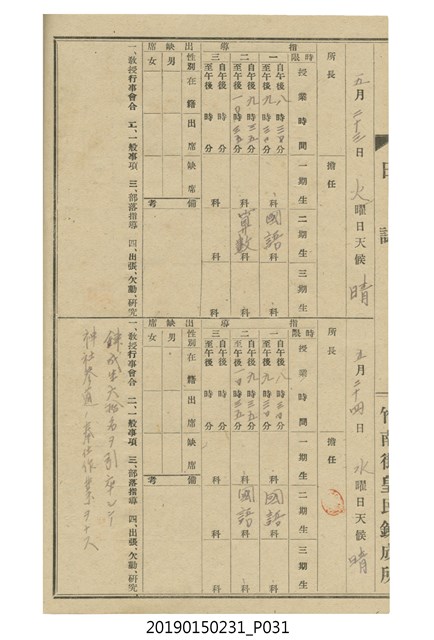 日誌
竹南街皇民鍊成所
五月二十三日 火曜日 天候 晴
所長 擔任
指導
時限 授業時間 一期生 二期生 三期生
一 自午後八時三〇分 至午後九時一〇分 科 國語 科 科
二 自午後九時 分 至午後一〇時 分 科 算數 科 科
三 自午後 時 分 至午後 時 分 科 科 科
出席
性別 在籍 出席 缺席 備考
男
缺
女
一、教授行事會合 二、一般事項 三、部落指導 四、出張、欠勤、研究
五月二十四日 水曜日 天候 晴
所長 擔任
指導
時限 授業時間 一期生 二期生 三期生
一 自午後八時三〇分 至午後九時一〇分 科 國語 科 科
二 自午後九時 五分 至午後一〇時 五分 科 國語 科 科
三 自午後 時 分 至午後 時 分 科 科 科
出席
性別 在籍 出席 缺席 備考
男
缺
女
一、教授行事會合 二、一般事項 三、部落指導 四、出張、欠勤、研究
鍊成生六拾名ヲ引率シテ
神社參道奉仕作業ヲナス
20190150231_P031